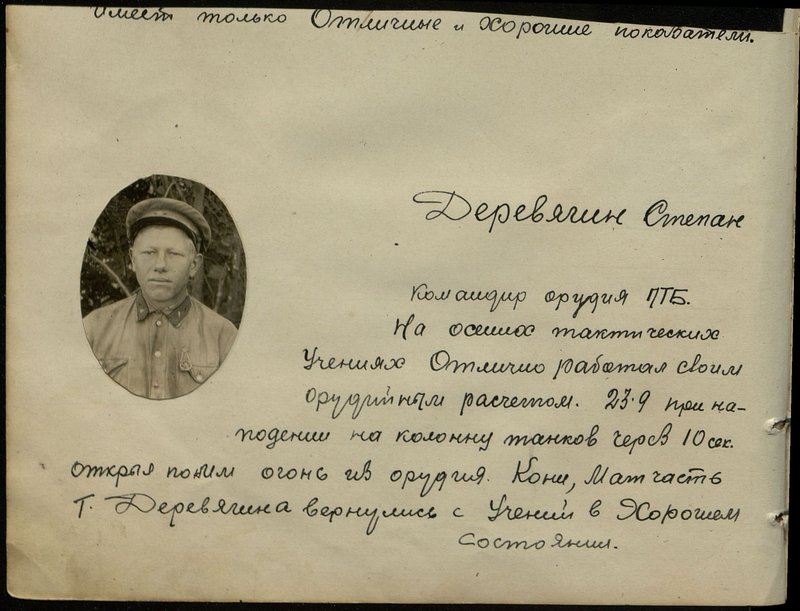 Имеет только Отличные и хорошие показатели.
Деревягин Степан
Командир орудия ПТБ.
На осених тактических
Учениях Отлично работал своим
орудийным расчетом. 23.9 при на-
подении на колонну танков через 10 сек.
открыл по ним огонь из орудия. Кони, Матчасть
Т. Деревягина вернулись с Учений в Хорошем
состоянии.